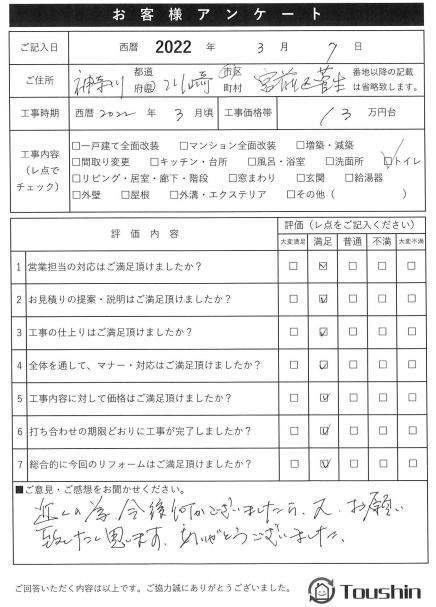 お客様アンケート
ご記入日 西暦 2022 年 3 月 7 日
ご住所 神奈川 都道府県 川崎 市区町村 宮前区菅生 番地以降の記載は省略致します。
工事時期 西暦 2022 年 3 月頃 工事価格帯 13 万円台
工事内容(レ点でチェック)
□一戸建て全面改装 □マンション全面改装 □増築・減築
□間取り変更 □キッチン・台所 □風呂・浴室 □洗面所 ☑トイレ
□リビング・居室・廊下・階段 □窓まわり □玄関 □給湯器
□外壁 □屋根 □外溝・エクステリア □その他( )
評価内容 評価(レ点をご記入ください)
大変満足 満足 普通 不満 大変不満
1 営業担当の対応はご満足頂けましたか? □ ☑ □ □ □
2 お見積りの提案・説明はご満足頂けましたか? □ ☑ □ □ □
3 工事の仕上りはご満足頂けましたか? □ ☑ □ □ □
4 全体を通して、マナー・対応はご満足頂けましたか? □ ☑ □ □ □
5 工事内容に対して価格はご満足頂けましたか? □ ☑ □ □ □
6 打ち合わせの期限どおりに工事が完了しましたか? □ ☑ □ □ □
7 総合的に今回のリフォームはご満足頂けましたか? □ ☑ □ □ □
■ご意見・ご感想をお聞かせください。
近くの為、今後何かございましたら、又、お願い
致したく思います。ありがとうございました。
ご回答いただく内容は以上です。ご協力誠にありがとうございました。
Toushin